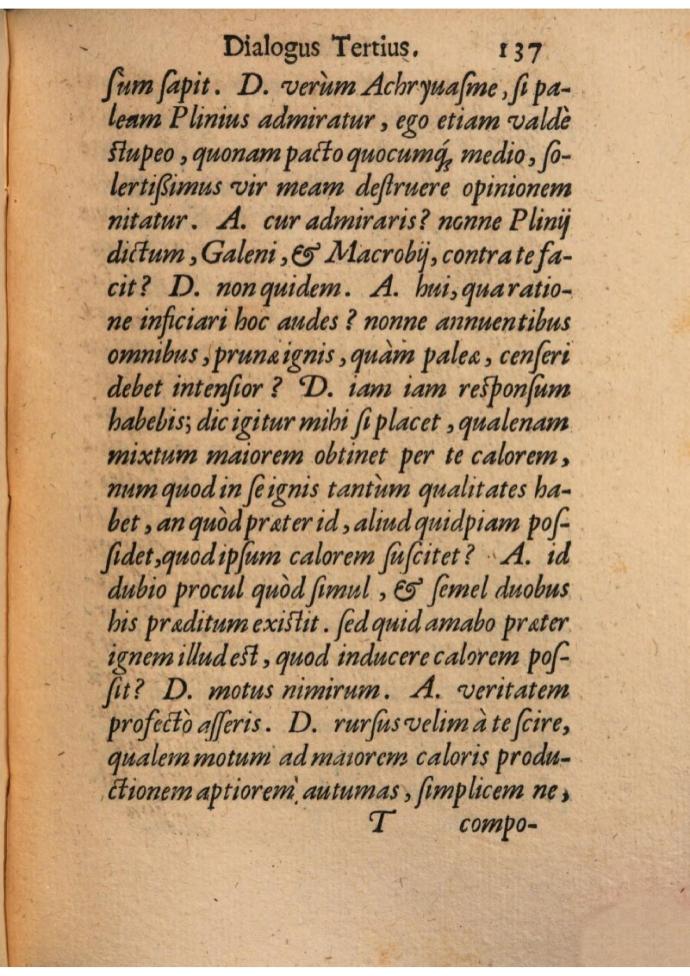 Dialogus Tertius. 137
ſum ſapit. D. verùm Achryuaſme, ſi pa-
leam Plinius admiratur, ego etiam valdè
ſtupeo, quonam pacto quocumq́ꝫ medio, ſo-
lertißimus vir meam deſtruere opinionem
nitatur. A. cur admiraris? nonne Plinij
dictum, Galeni, & Macrobij, contra te fa-
cit? D. non quidem. A. hui, qua ratio-
ne inficiari hoc audes? nonne annuentibus
omnibus, prunæ ignis, quàm paleæ, cenſeri
debet intenſior? D. iam iam reſponſum
habebis; dic igitur mihi ſi placet, qualenam
mixtum maiorem obtinet per te calorem,
num quod in ſe ignis tantùm qualitates ha-
bet, an quòd præter id, aliud quidpiam poſ-
ſidet, quod ipſum calorem ſuſcitet? A. id
dubio procul quòd ſimul, & ſemel duobus
his præditum exiſtit. ſed quid amabo præter
ignem illud eſt, quod inducere calorem poſ-
ſit? D. motus nimirum. A. veritatem
profectò aſſeris. D. rurſus velim à te ſcire,
qualem motum ad maiorem caloris produ-
ctionem aptiorem autumas, ſimplicem ne,
T compo-